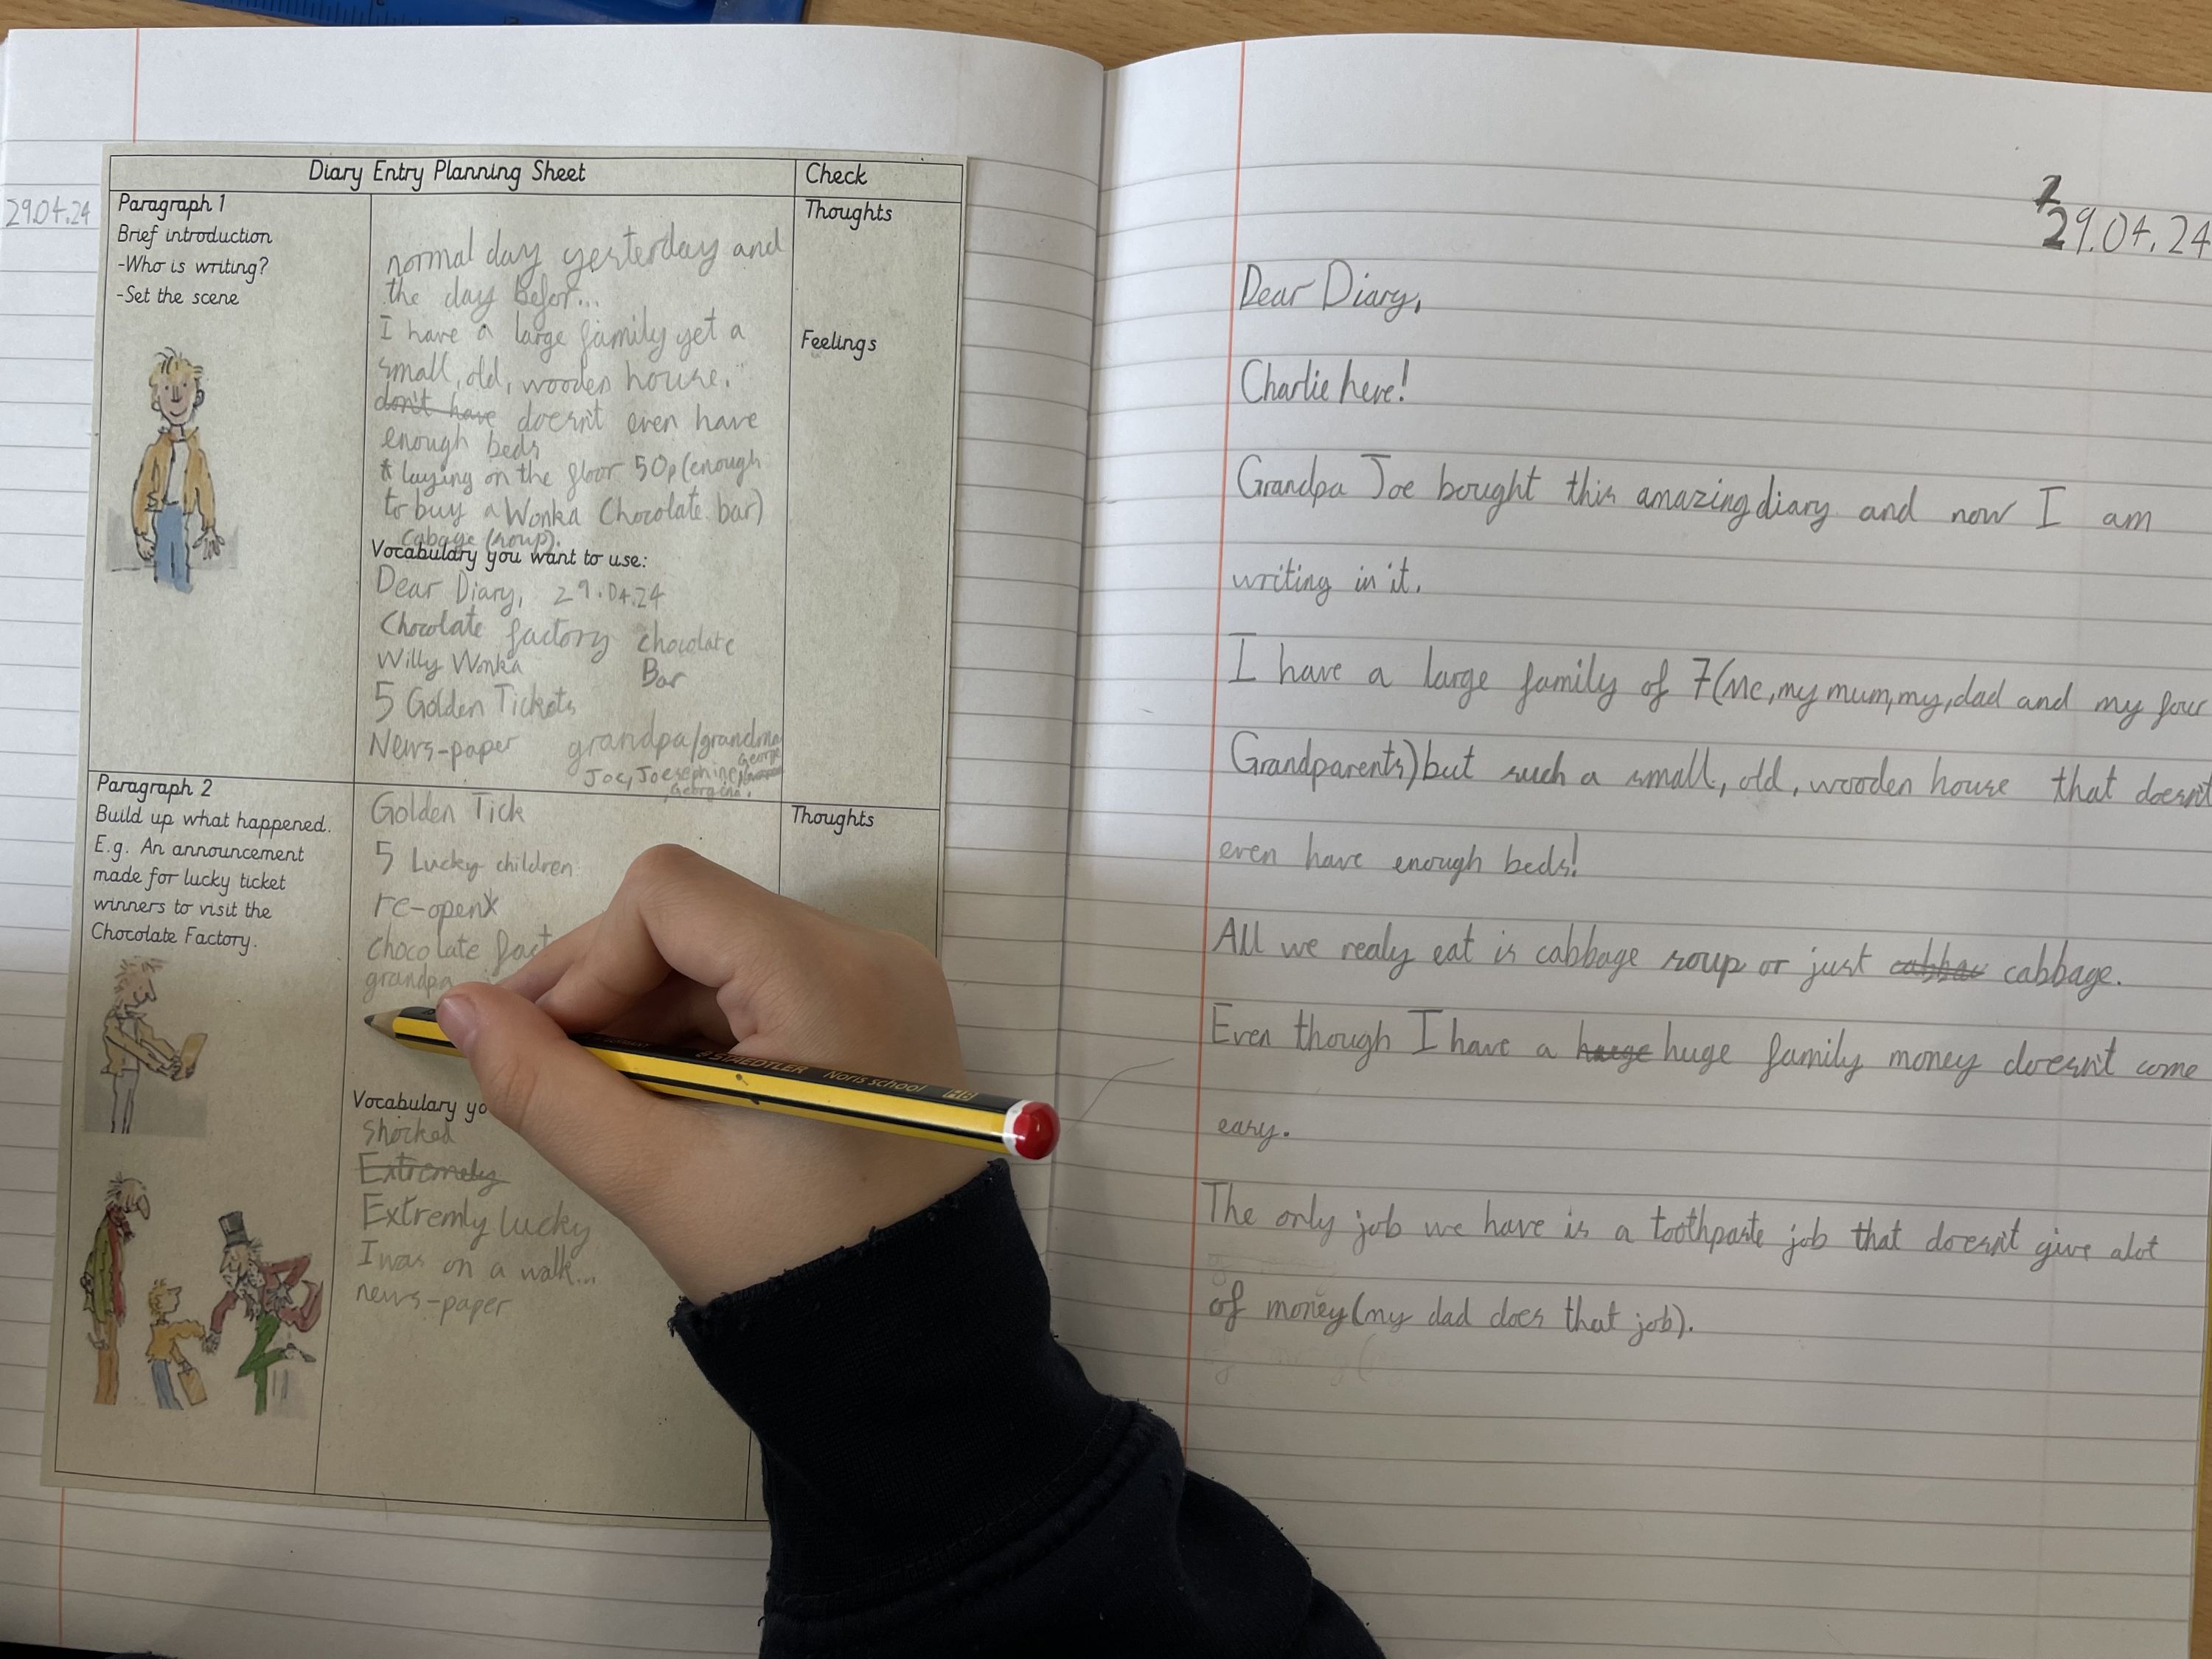 29.04.24
Diary Entry Planning Sheet
Check
Paragraph 1
Brief introduction
-Who is writing?
-Set the scene
normal day yesterday and
the day befor...
I have a large family yet a
small, old, wooden house.
don't have doesn't even have
enough beds
* laying on the floor 50p (enough
to buy a Wonka Chocolate bar)
cabage (soup).
Vocabulary you want to use:
Dear Diary, 29.04.24
Chocolate factory chocolate
Willy Wonka Bar
5 Golden Tickets
News-paper grandpa/grandma
Joe, Joesephine, George
, Georgina.
Thoughts
Feelings
Paragraph 2
Build up what happened.
E.g. An announcement
made for lucky ticket
winners to visit the
Chocolate Factory.
Golden Tick
5 Lucky children
re-open
chocolate fact
grandpa
Vocabulary yo
shocked
Extremely
Extremly lucky
I was on a walk...
news-paper
Thoughts
STAEDTLER Noris school HB
29.04.24
Dear Diary,
Charlie here!
Grandpa Joe bought this amazing diary and now I am
writing in it.
I have a large family of 7(Me, my mum, my, dad and my four
Grandparents) but such a small, old, wooden house that doesn't
even have enough beds!
All we realy eat is cabbage soup or just cabbac cabbage.
Even though I have a huege huge family money doesn't come
easy.
The only job we have is a toothpaste job that doesn't give alot
of money (my dad does that job).